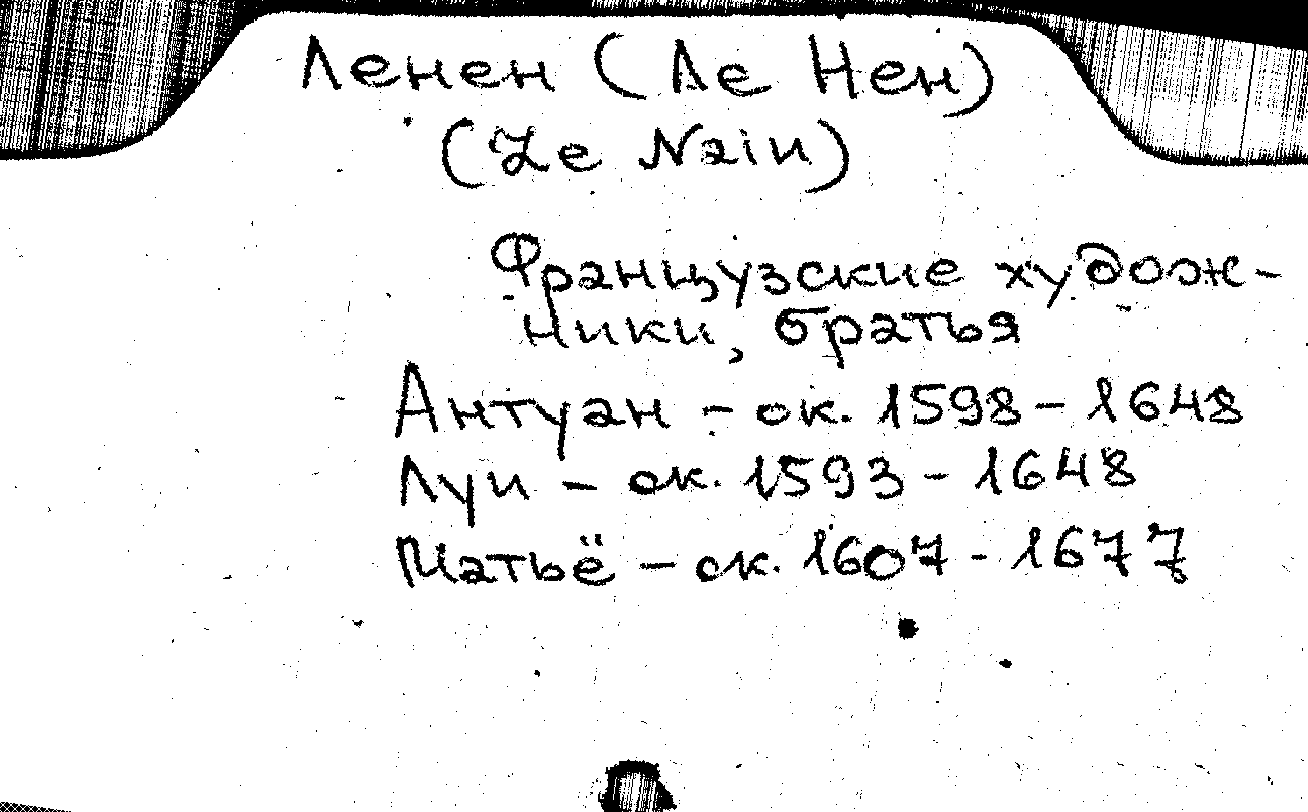 Ленен (Ле Нен)
(Le Nain)
Французские худож-
ники, братья
Антуан – ок. 1598 – 1648
Луи – ок. 1593 – 1648
Матьё – ок. 1607 - 1677